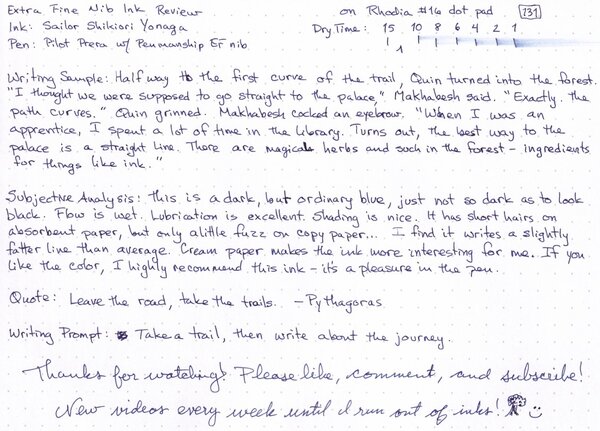 Extra Fine Nib Ink Review on Rhodia #16 dot pad 131
Ink: Sailor Shikiori Yonaga Dry Time: 15 10 8 6 4 2 1
Pen: Pilot Prera w/ Penmanship EF nib
Writing Sample: Half way to the first curve of the trail, Quin turned into the forest.
"I thought we were supposed to go straight to the palace," Makhabesh said. "Exactly. The
path curves." Quin grinned. Makhabesh cocked an eyebrow. "When I was an
apprentice, I spent a lot of time in the library. Turns out, the best way to the
palace is a straight line. There are magical herbs and such in the forest - ingredients
for things like ink."
Subjective Analysis: This is a dark, but ordinary blue, just not so dark as to look
black. Flow is wet. Lubrication is excellent. Shading is nice. It has short hairs on
absorbent paper, but only a little fuzz on copy paper... I find it writes a slightly
fatter line than average. Cream paper makes the ink more interesting for me. If you
like the color, I highly recommend this ink - it's a pleasure in the pen.
Quote: Leave the road, take the trails. - Pythagoras
Writing Prompt: Take a trail, then write about the journey.
Thanks for watching! Please like, comment, and subscribe!
New videos every week until I run out of inks!